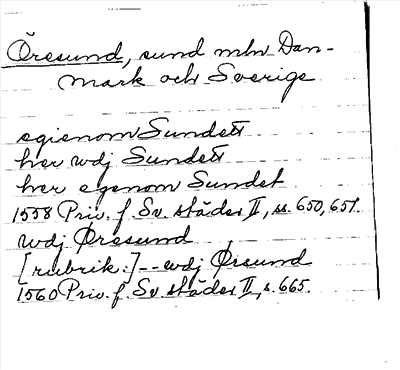 Öresund, sund mln Dan-
mark och Sverige
egienom Sundett
her wdj Sundett
her egenom Sundet
1558 Priv. f. Sv. städer II, ss. 650, 651.
wdj Øresund
[rubrik:] -- wdj Ørsund
1560 Priv. f. Sv städer II, s. 665.